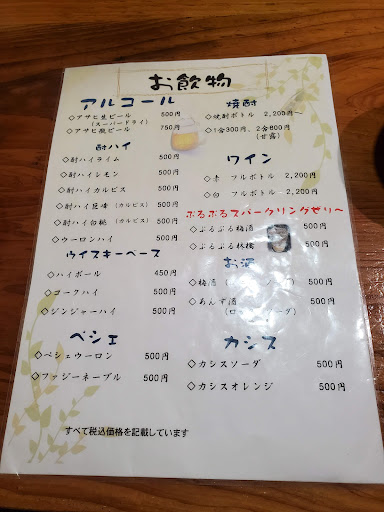 お飲物
アルコール
◇アサヒ生ビール 500円
(スーパードライ)
◇アサヒ瓶ビール 750円
酎ハイ
◇酎ハイライム 500円
◇酎ハイレモン 500円
◇酎ハイカルピス 500円
◇酎ハイ巨峰 (カルピス) 500円
◇酎ハイ白桃 (カルピス) 500円
◇ウーロンハイ 500円
ウイスキーベース
◇ハイボール 450円
◇コークハイ 500円
◇ジンジャーハイ 500円
ペシェ
◇ペシェウーロン 500円
◇ファジーネーブル 500円
焼酎
◇焼酎ボトル 2,200円～
◇1合300円、2合600円
(甘露)
ワイン
◇赤 フルボトル 2,200円
◇白 フルボトル 2,200円
ぷるぷるスパークリングゼリ～
◇ぷるぷる梅酒 500円
◇ぷるぷる林檎 500円
お酒
◇梅酒 500円
◇あんず酒 500円
カシス
◇カシスソーダ 500円
◇カシスオレンジ 500円
すべて税込価格を記載しています